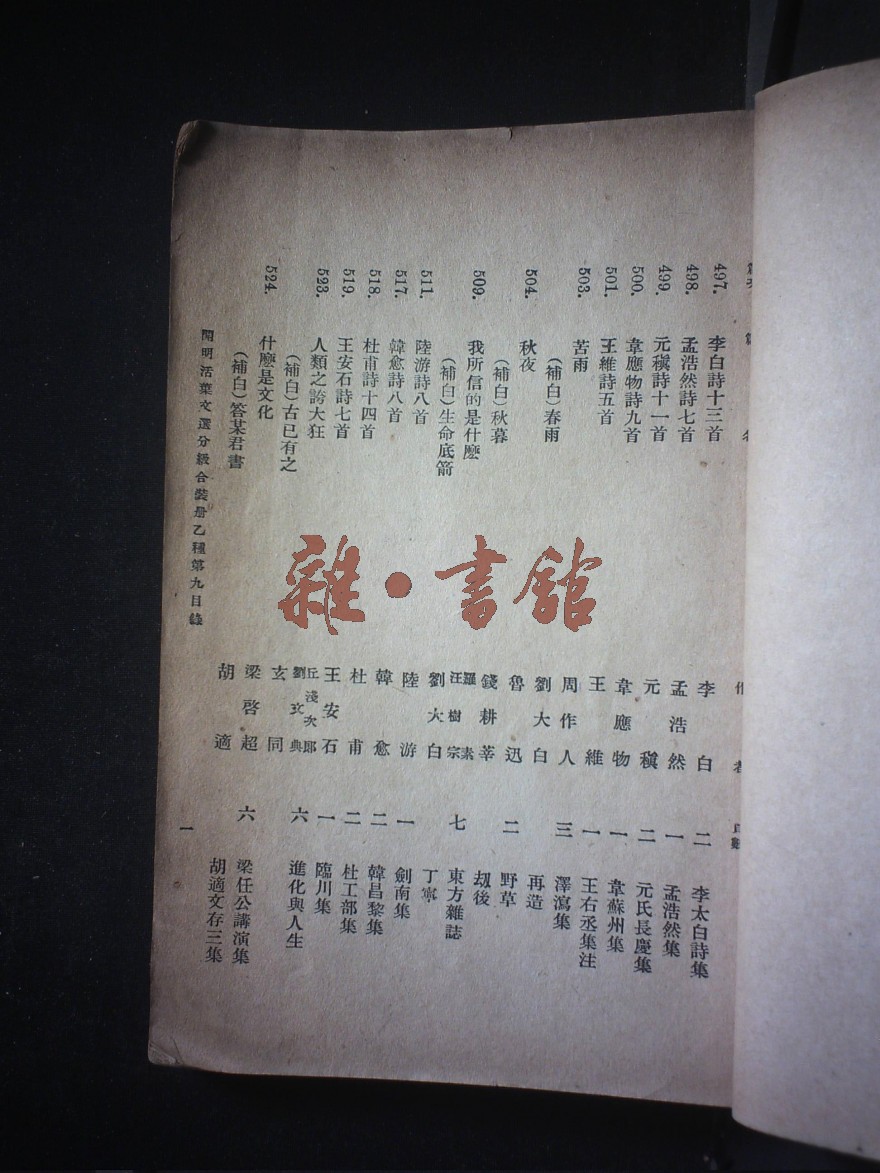 篇次 篇 名 作 者 頁數
497. 李白詩十三首 李白 二 李太白詩集
498. 孟浩然詩七首 孟浩然 一 孟浩然集
499. 元稹詩十一首 元稹 二 元氏長慶集
500. 韋應物詩九首 韋應物 一 韋蘇州集
501. 王維詩五首 王維 一 王右丞集注
503. 苦雨 周作人 三 澤瀉集
(補白)春雨 劉大白 再造
504. 秋夜 魯迅 二 野草
(補白)秋暮 錢耕莘 刼後
509. 我所信的是什麽 羅素 汪樹宗 七 東方雜誌
(補白)生命底箭 劉大白 丁寧
511. 陸游詩八首 陸游 一 劍南集
517. 韓愈詩八首 韓愈 二 韓昌黎集
518. 杜甫詩十四首 杜甫 二 杜工部集
519. 王安石詩七首 王安石 一 臨川集
523. 人類之誇大狂 丘淺次郎 劉文典 六 進化與人生
(補白)古已有之 玄同
524. 什麽是文化 梁啓超 六 梁任公講演集
(補白)答某君書 胡適 胡適文存三集
開明活葉文選分級合裝册乙種第九目錄
一
雜·書館